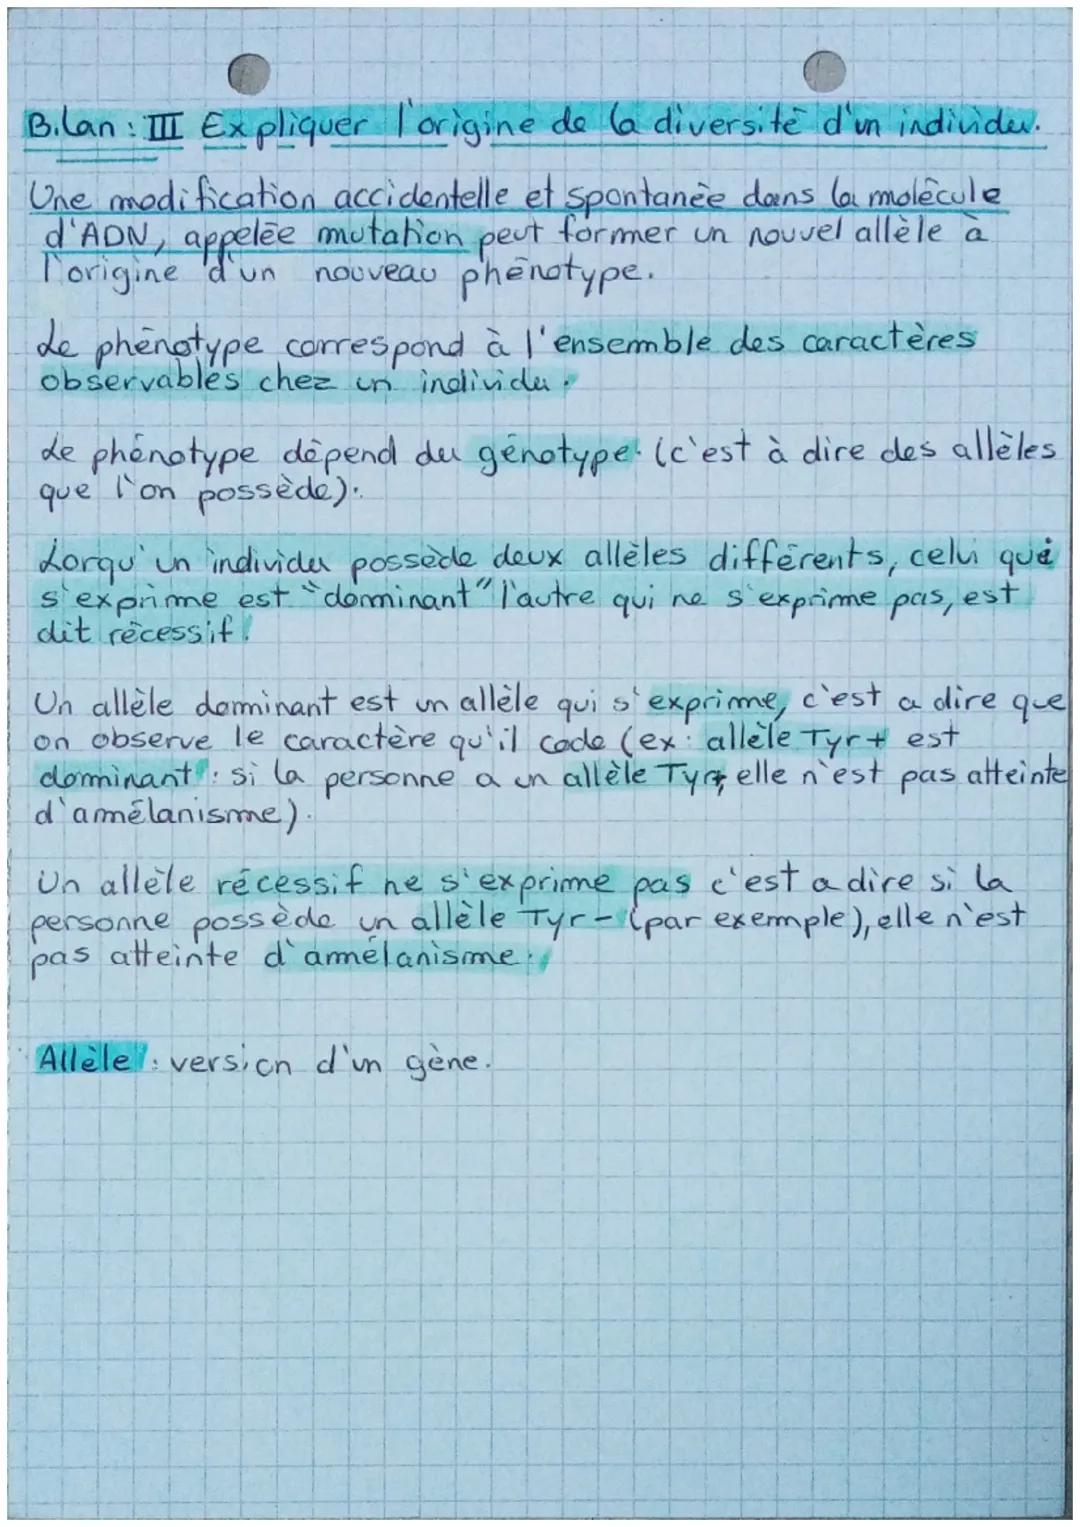 Bilan : III Expliquer l'origine de la diversité d'un individu.
Une modification accidentelle et spontanée dans la molécule
d'ADN, appelée mutation peut former un nouvel allèle à
l'origine d'un nouveau phénotype.
Le phénotype correspond à l'ensemble des caractères
observables chez un individu.
Le phénotype dépend du génotype. (c'est à dire des allèles
que l'on possède).
Lorqu'un individu possède deux allèles différents, celui qui
s'exprime est "dominant" l'autre qui ne s'exprime pas, est
dit récessif.
Un allèle dominant est un allèle qui s'exprime, c'est a dire que
on observe le caractère qu'il code (ex: allèle Tyr+ est
dominant : si la personne a un allèle Tyr+, elle n'est pas atteinte
d'amélanisme).
Un allèle récessif ne s'exprime pas c'est a dire si la
personne possède un allèle Tyr- (par exemple), elle n'est
pas atteinte d'amélanisme.
Allèle : version d'un gène.